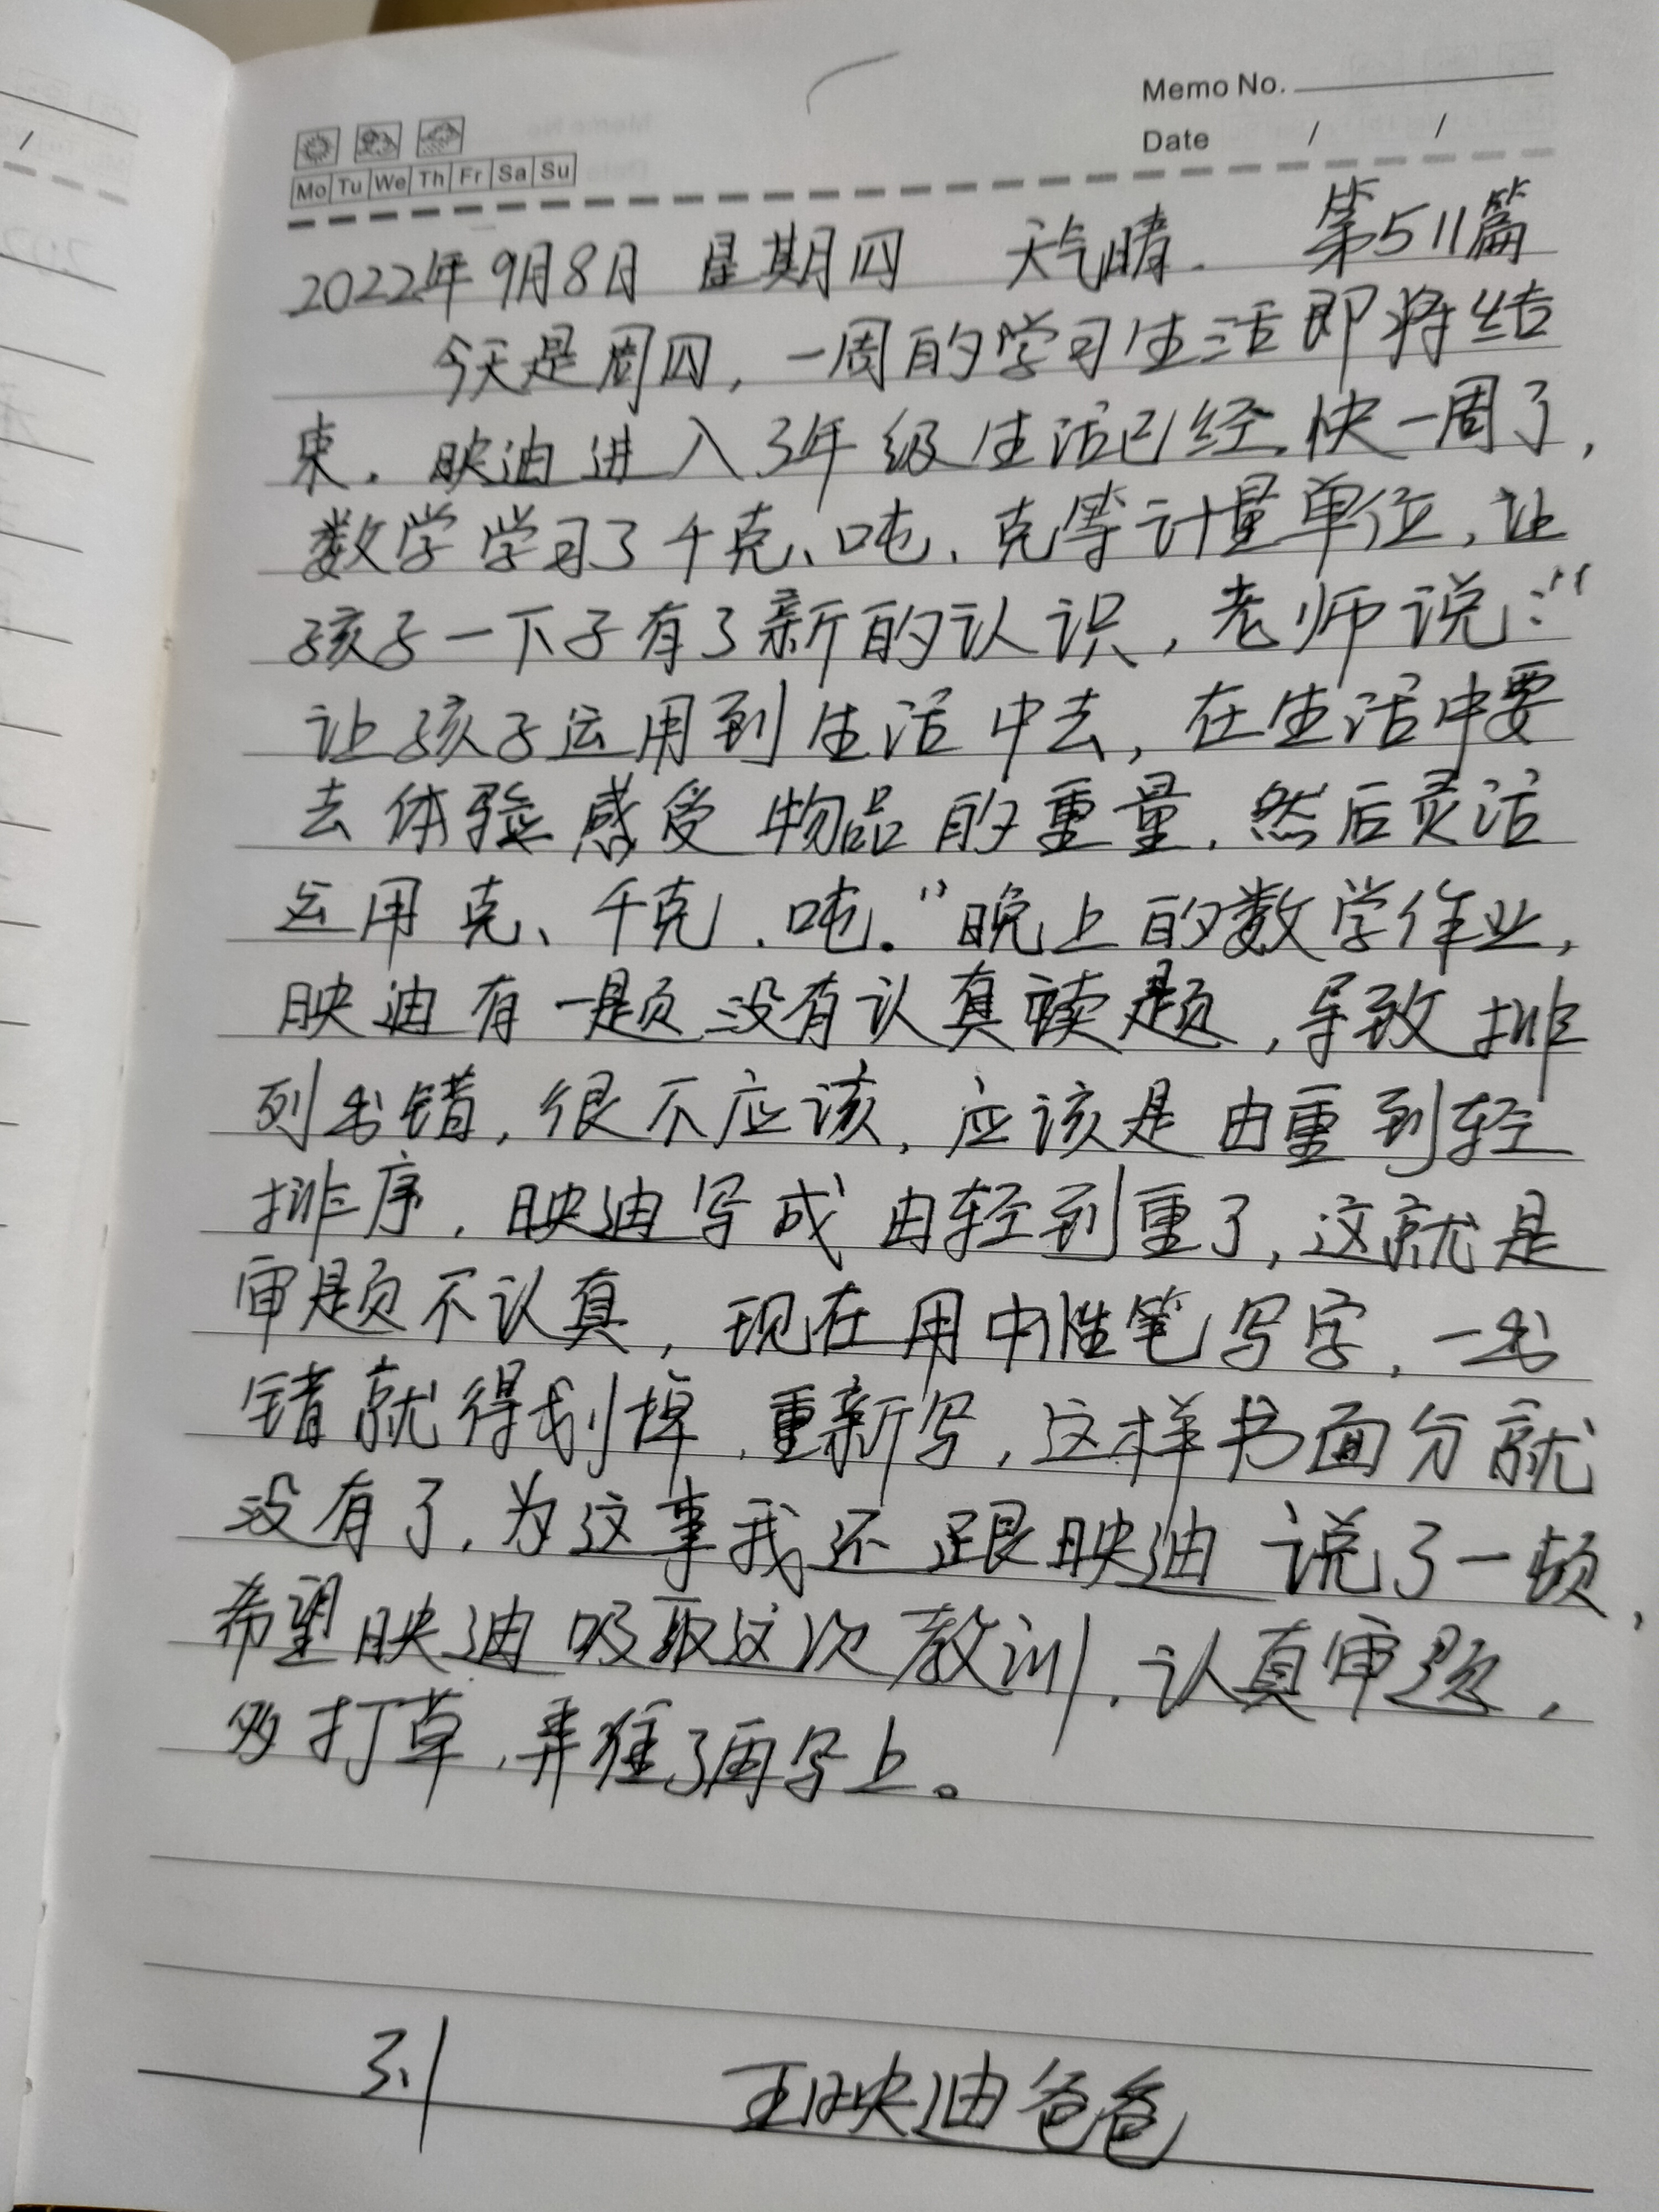 Memo No.
Date / /
Mo Tu We Th Fr Sa Su
2022年9月8日 星期四 天气晴. 第511篇
今天是周四,一周的学习生活即将结
束.映迪进入3年级生活已经快一周了,
数学学习了千克、吨、克等计量单位,让
孩子一下子有了新的认识,老师说:"
让孩子运用到生活中去,在生活中要
去体验感受物品的重量,然后灵活
运用克、千克、吨。"晚上的数学作业,
映迪有一题没有认真读题,导致排
列出错,很不应该,应该是由重到轻
排序,映迪写成由轻到重了,这就是
审题不认真,现在用中性笔写字,一出
错就得划掉,重新写,这样书面分就
没有了,为这事我还跟映迪说了一顿,
希望映迪吸取这次教训,认真审题,
多打草,弄准了再写上。
3.1 王映迪爸爸